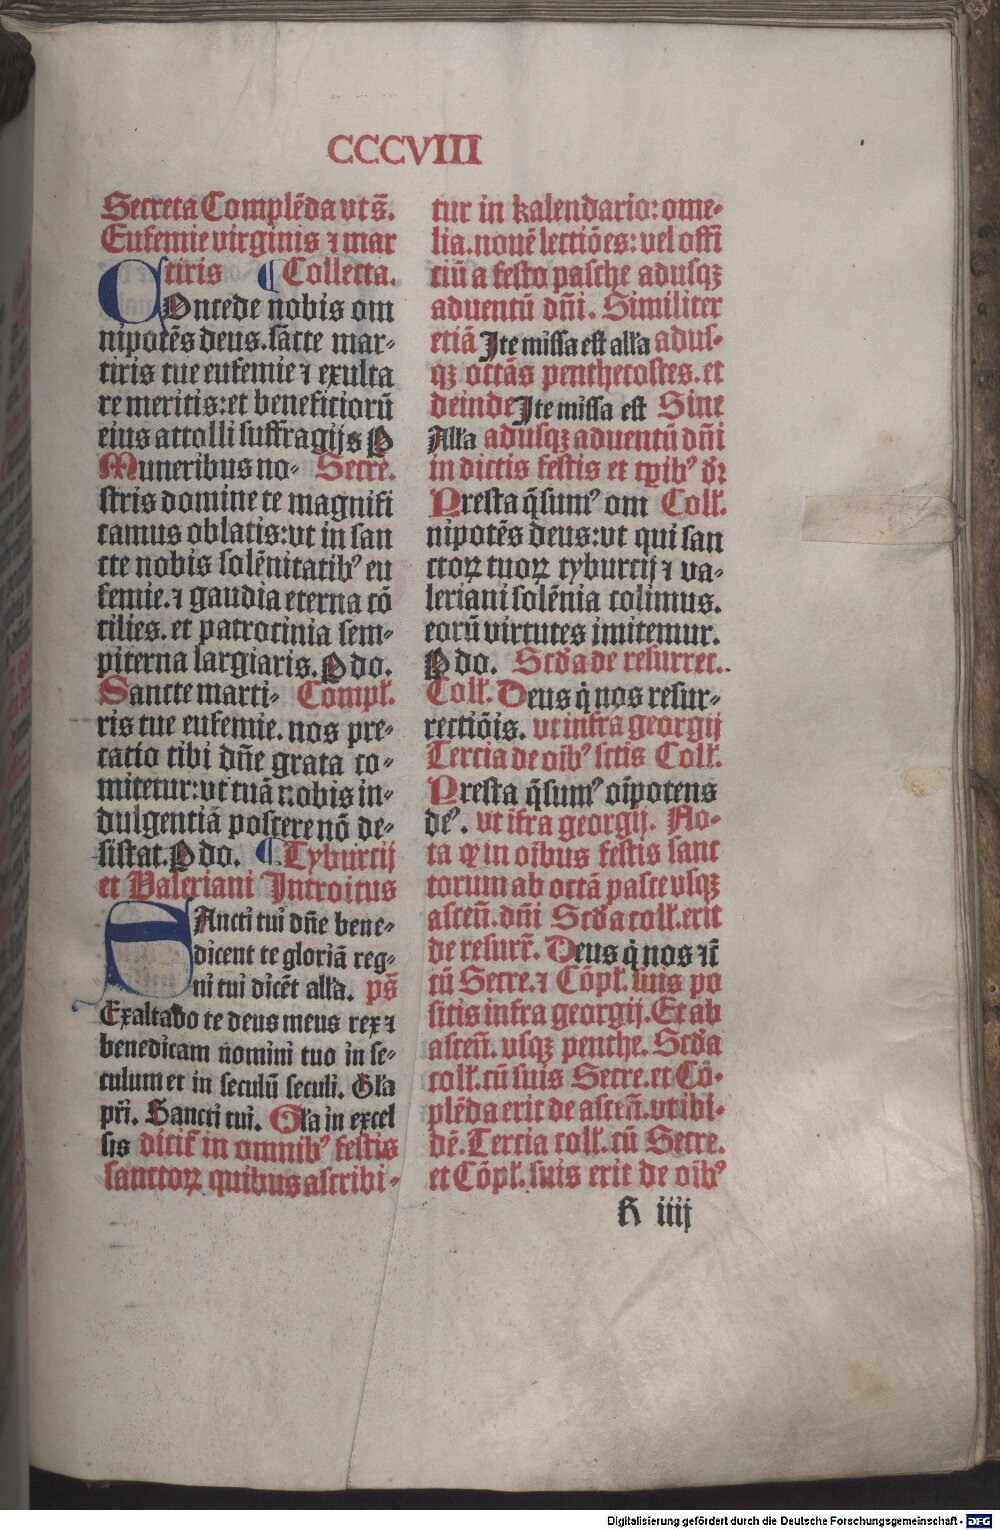 CCCVIII
Secreta Complēda vt s̄.
Eufemie virginis ⁊ mar
tiris ¶ Collecta.
COncede nobis om
nipotēs deus. sācte mar⸗
tiris tue eufemie ⁊ exulta
re meritis: et beneficiorū
eius attolli suffragijs P
Muneribus no⸗ Secre.
stris domine te magnifi
camus oblatis: vt in san
cte nobis solēnitatibꝰ eu
femie. ⁊ gaudia eterna cō
cilies. et patrocinia sem⸗
piterna largiaris. P do.
Sancte marti⸗ Compl̄.
ris tue eufemie. nos pre⸗
catio tibi dn̄e grata co⸗
mitetur: vt tuā nobis in⸗
dulgentiā poscere nō de⸗
sistat. P do. ¶ Tyburcij
et Valeriani Introitus
SAncti tui dn̄e bene⸗
dicent te gloriā reg⸗
ni tui dicēt all'a. ps̄
Exaltabo te deus meus rex ⁊
benedicam nomini tuo in se⸗
culum et in seculū seculi. Gl'a
pr̄i. Sancti tui. Gl'a in excel
sis dicit̄ in omnibꝰ festis
sanctoꝝ quibus ascribi⸗
tur in kalendario: ome⸗
lia. nouē lectiōes: vel offi
ciū a festo pasche adusqꝫ
aduentū dn̄i. Similiter
etiā Ite missa est all'a adus⸗
qꝫ octās penthecostes. et
deinde Ite missa est Sine
All'a adusqꝫ aduentū dn̄i
in dictis festis et tꝑibꝰ dr̄
Presta q̄sumꝰ om Coll'.
nipotēs deus: vt qui san
ctoꝝ tuoꝝ tyburcij ⁊ va⸗
leriani solēnia colimus.
eorū virtutes imitemur.
P do. Scd'a de resurrec..
Coll'. Deus q̇ nos resur⸗
rectiōis. vt infra georgij
Tercia de oībꝰ sctis Coll'.
Presta q̄sumꝰ oīpotens
deꝰ. vt ifra georgij. No⸗
ta ꝙ in oībus festis sanc
torum ab octā pasce vsqꝫ
ascen̄. dn̄i Scd'a coll'. erit
de resurr̄. Deus q̇ nos ⁊c̄
cū Secre. ⁊ Cōpl'. suis po
sitis infra georgij. Et ab
ascen̄. vsqꝫ penthe. Scd'a
coll'. cū suis Secre. et Cō⸗
plēda erit de ascen̄. vt ibi⸗
dē. Tercia coll'. cū Secre.
et Cōpl'. suis erit de oībꝰ
H iiij
Digitalisierung gefördert durch die Deutsche Forschungsgemeinschaft - DFG